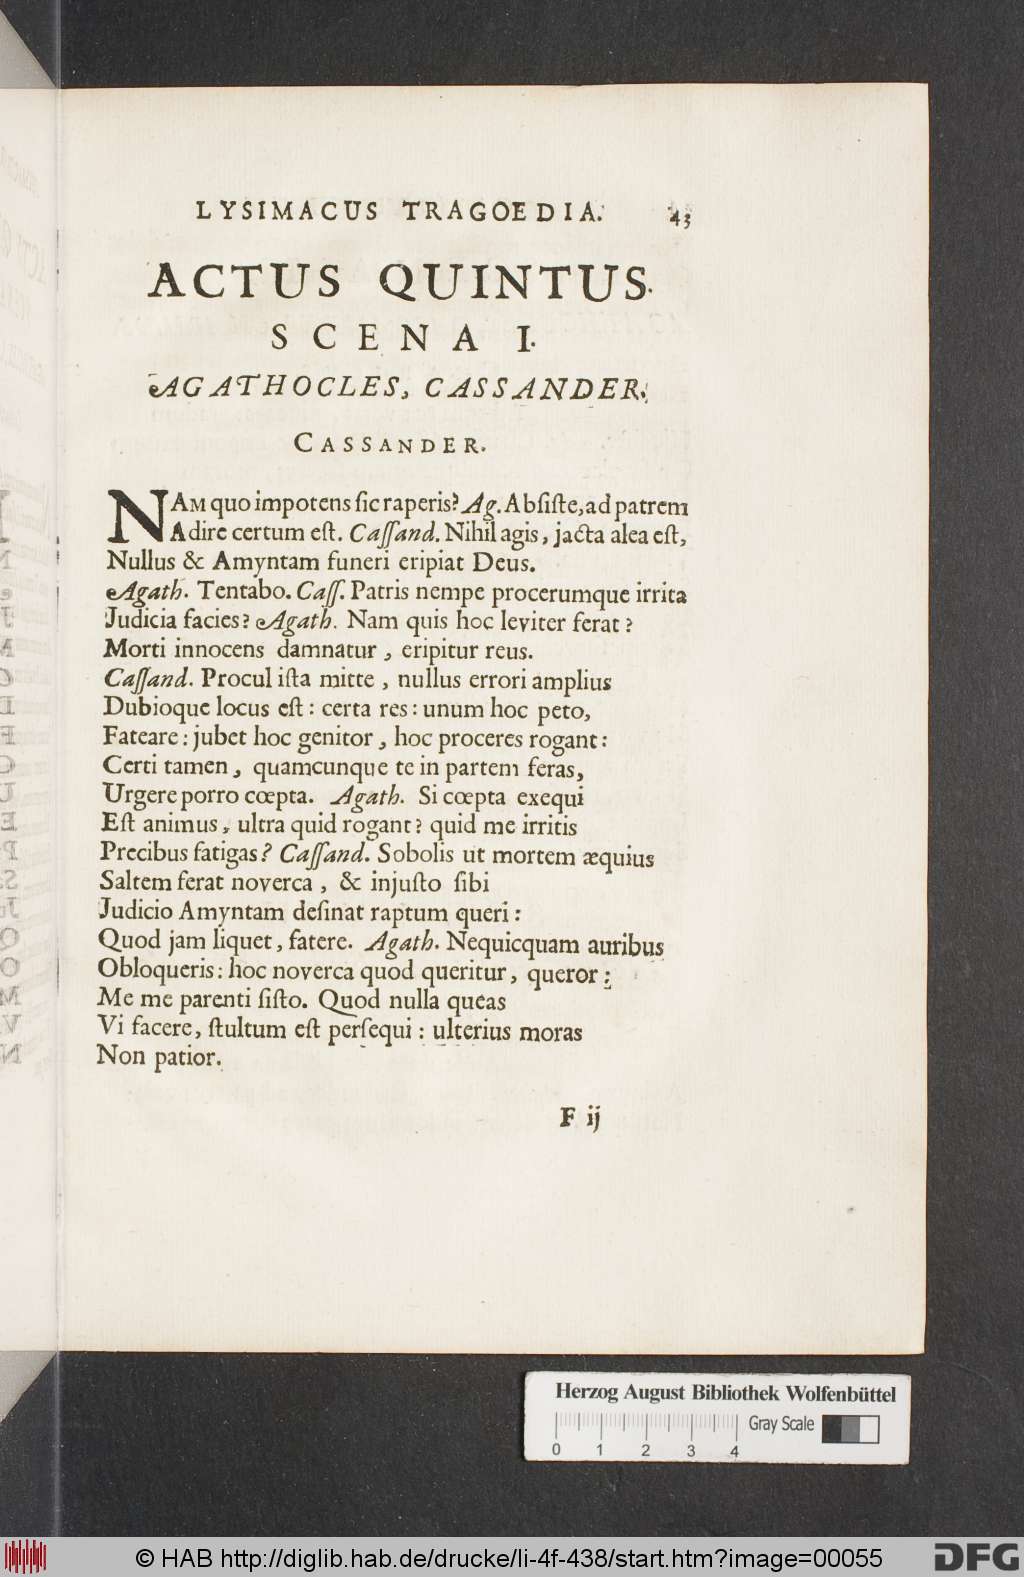 LYSIMACUS TRAGOEDIA. 43
ACTUS QUINTUS.
SCENA I.
AGATHOCLES, CASSANDER.
CASSANDER.
NAM quo impotens sic raperis? Ag. Absiste, ad patrem
Adire certum est. Cassand. Nihil agis, jacta alea est,
Nullus & Amyntam funeri eripiat Deus.
Agath. Tentabo. Cass. Patris nempe procerumque irrita
Judicia facies? Agath. Nam quis hoc leviter ferat?
Morti innocens damnatur, eripitur reus.
Cassand. Procul ista mitte, nullus errori amplius
Dubioque locus est: certa res: unum hoc peto,
Fateare: jubet hoc genitor, hoc proceres rogant:
Certi tamen, quamcunque te in partem feras,
Urgere porro cœpta. Agath. Si cœpta exequi
Est animus, ultra quid rogant? quid me irritis
Precibus fatigas? Cassand. Sobolis ut mortem æquius
Saltem ferat noverca, & injusto sibi
Judicio Amyntam desinat raptum queri:
Quod jam liquet, fatere. Agath. Nequicquam auribus
Obloqueris: hoc noverca quod queritur, queror:
Me me parenti sisto. Quod nulla queas
Vi facere, stultum est persequi: ulterius moras
Non patior.
F ij
Herzog August Bibliothek Wolfenbüttel
Gray Scale
0 1 2 3 4
© HAB http://diglib.hab.de/drucke/li-4f-438/start.htm?image=00055
DFG